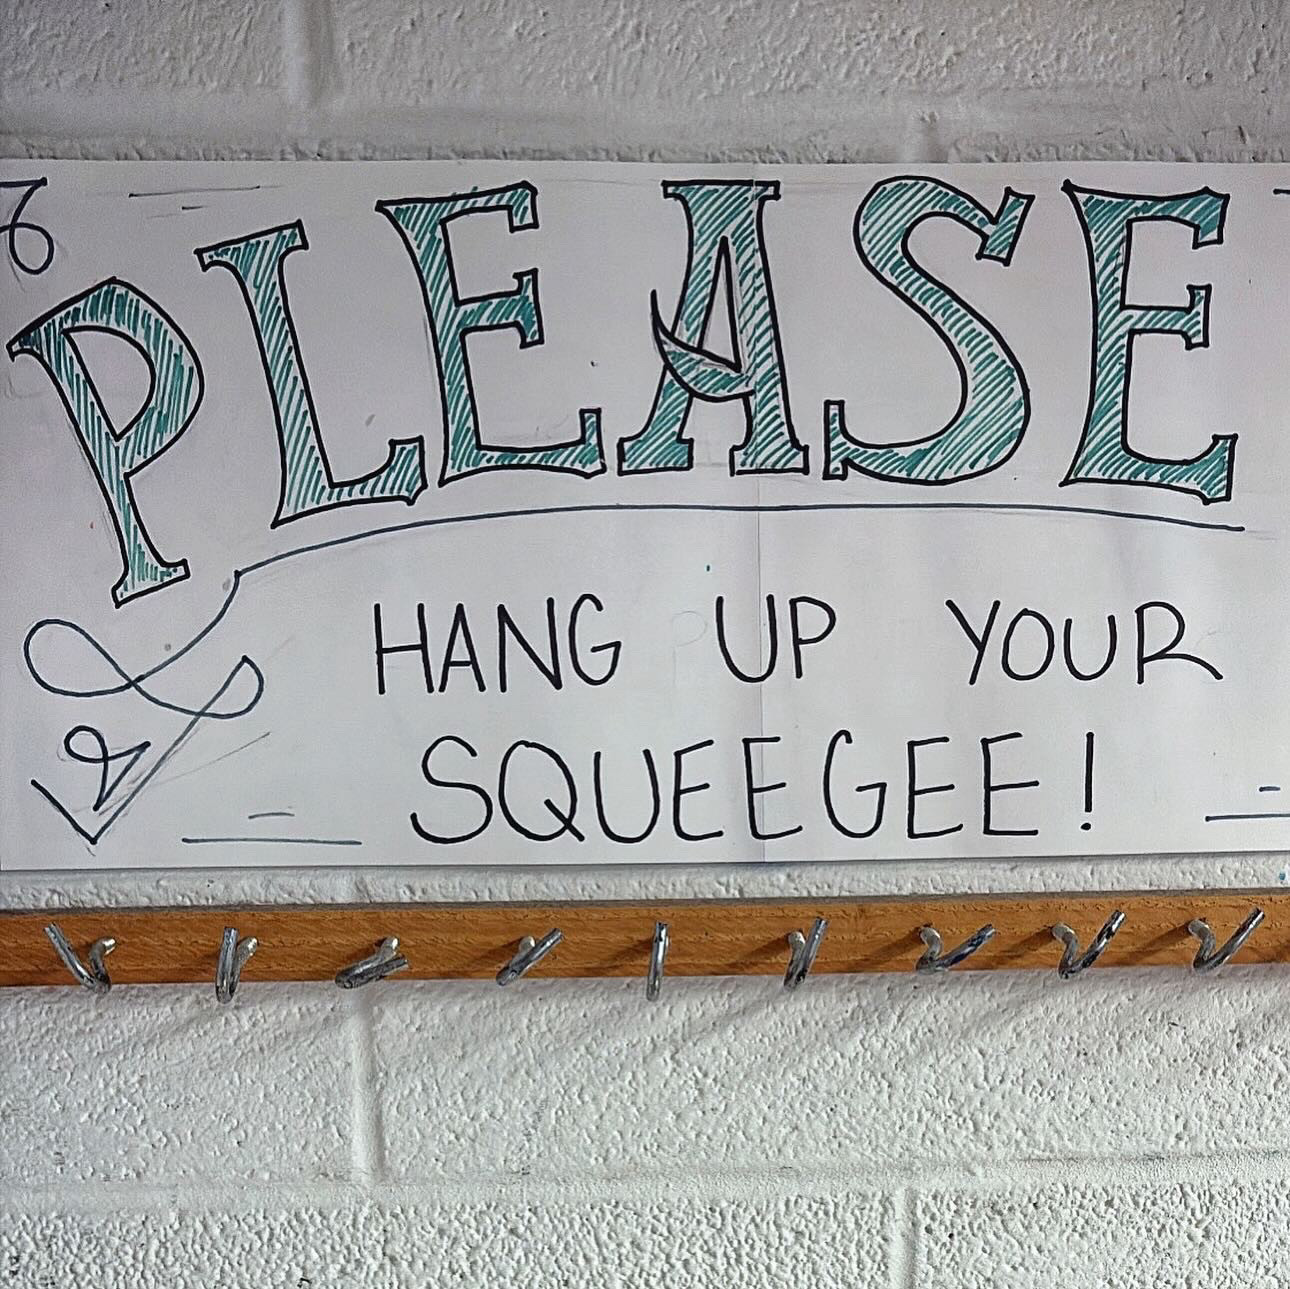 PLEASE
HANG UP YOUR
SQUEEGEE!